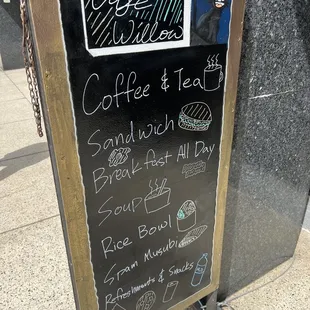 Cafe
Willow
Coffee & Tea
Sandwich
Breakfast All Day
Soup
Rice Bowl
Spam Musubi
Refreshments & Snacks